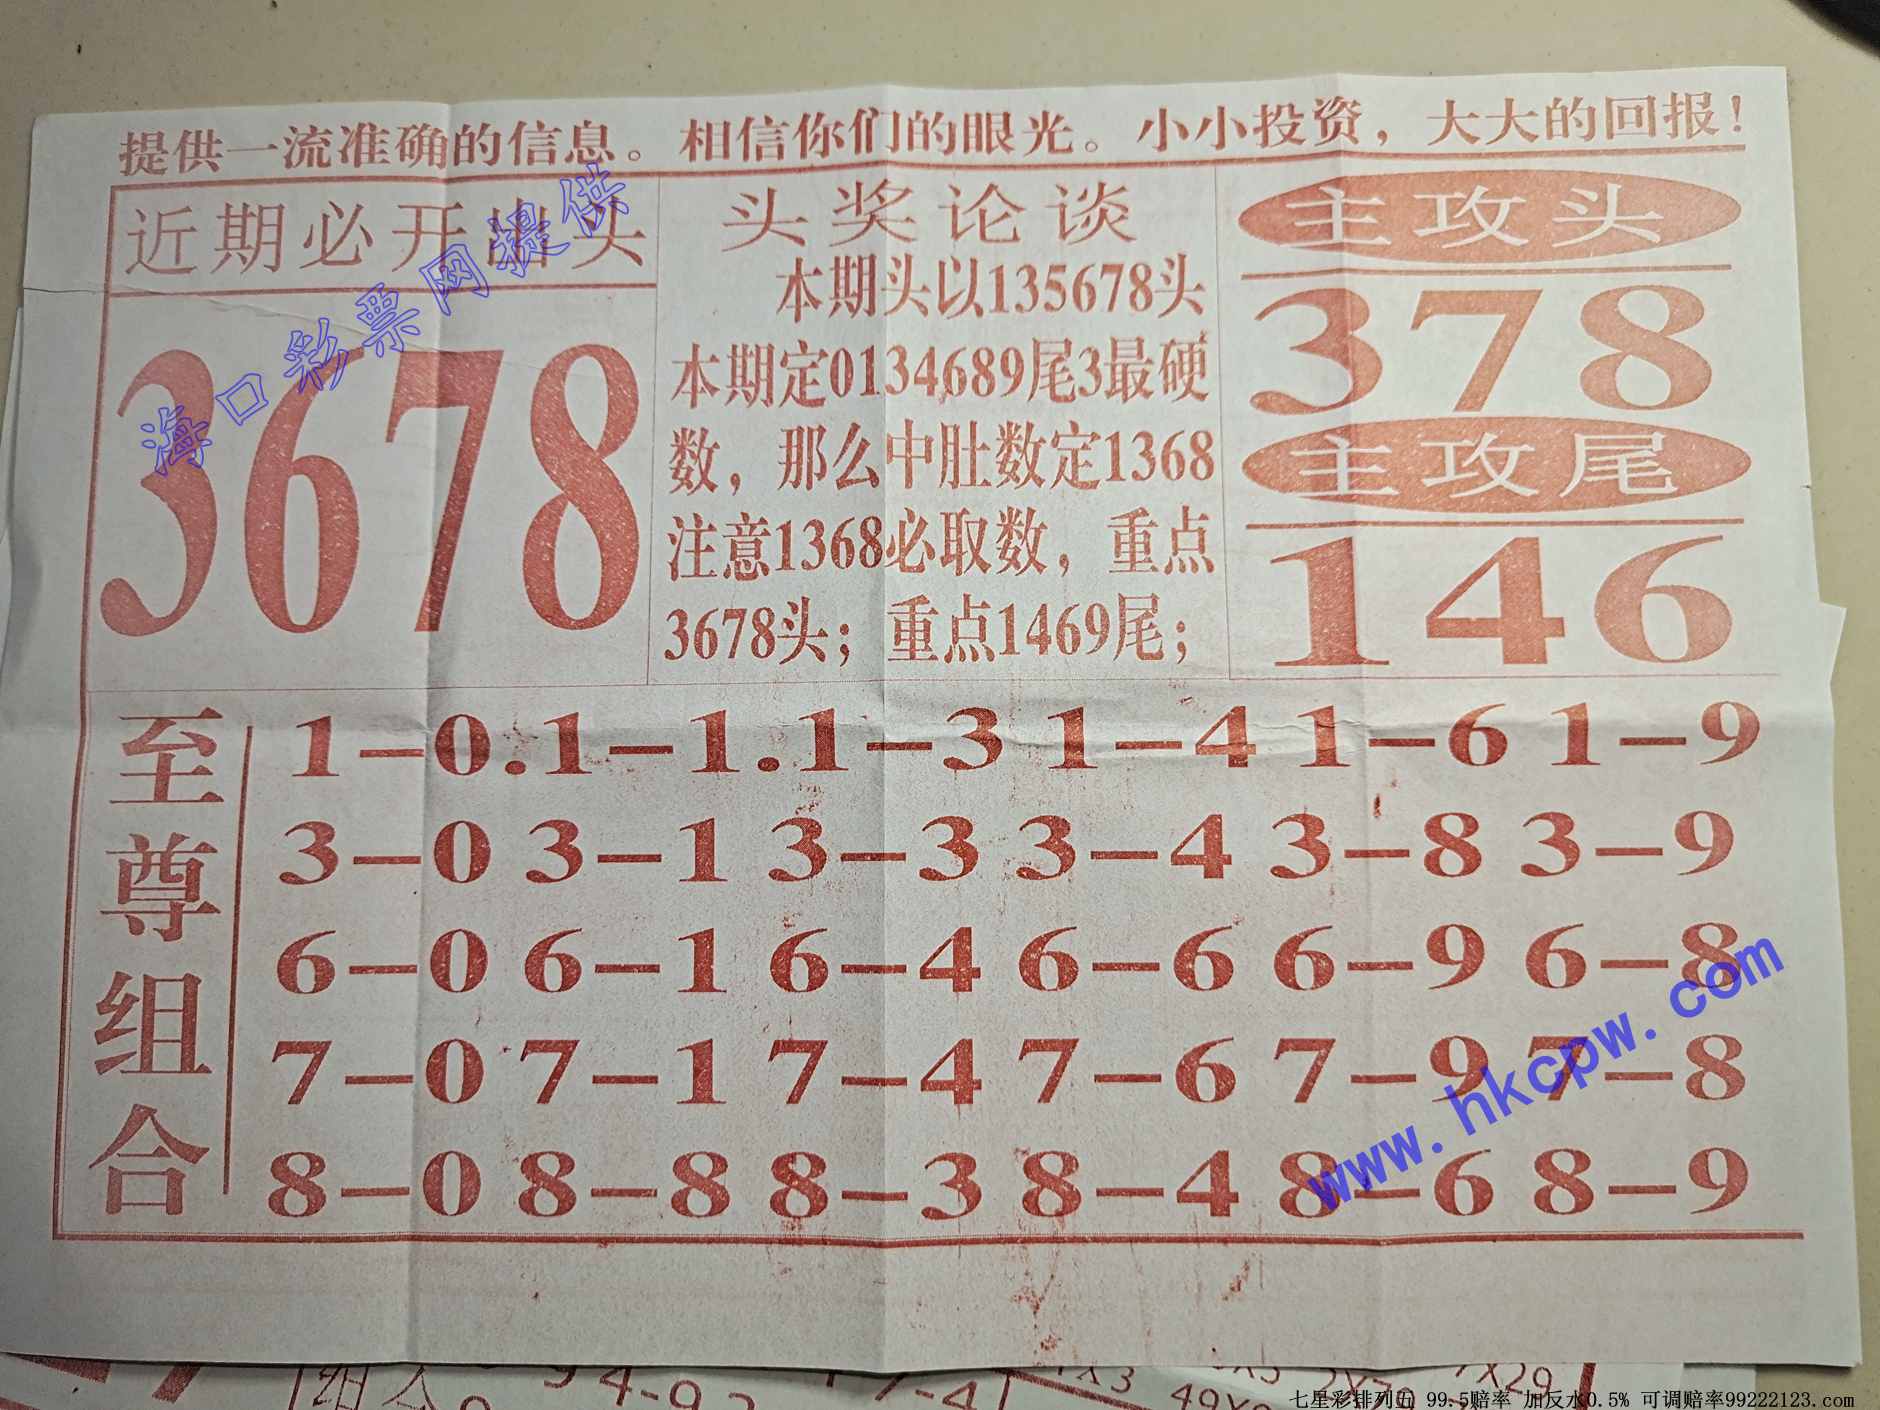 提供一流准确的信息。相信你们的眼光。小小投资，大大的回报！
近期必开出头
3678
头奖论谈
本期头以135678头
本期定0134689尾3最硬
数，那么中肚数定1368
注意1368必取数，重点
3678头；重点1469尾；
主攻头
378
主攻尾
146
至尊组合
1-0.1-1.1-3 1-4 1-6 1-9
3-0 3-1 3-3 3-4 3-8 3-9
6-0 6-1 6-4 6-6 6-9 6-8
7-0 7-1 7-4 7-6 7-9 7-8
8-0 8-8 8-3 8-4 8-6 8-9
海口彩票网提供
www.hkcpw.com
七星彩排列五 99.5赔率 加反水0.5% 可调赔率99222123.com